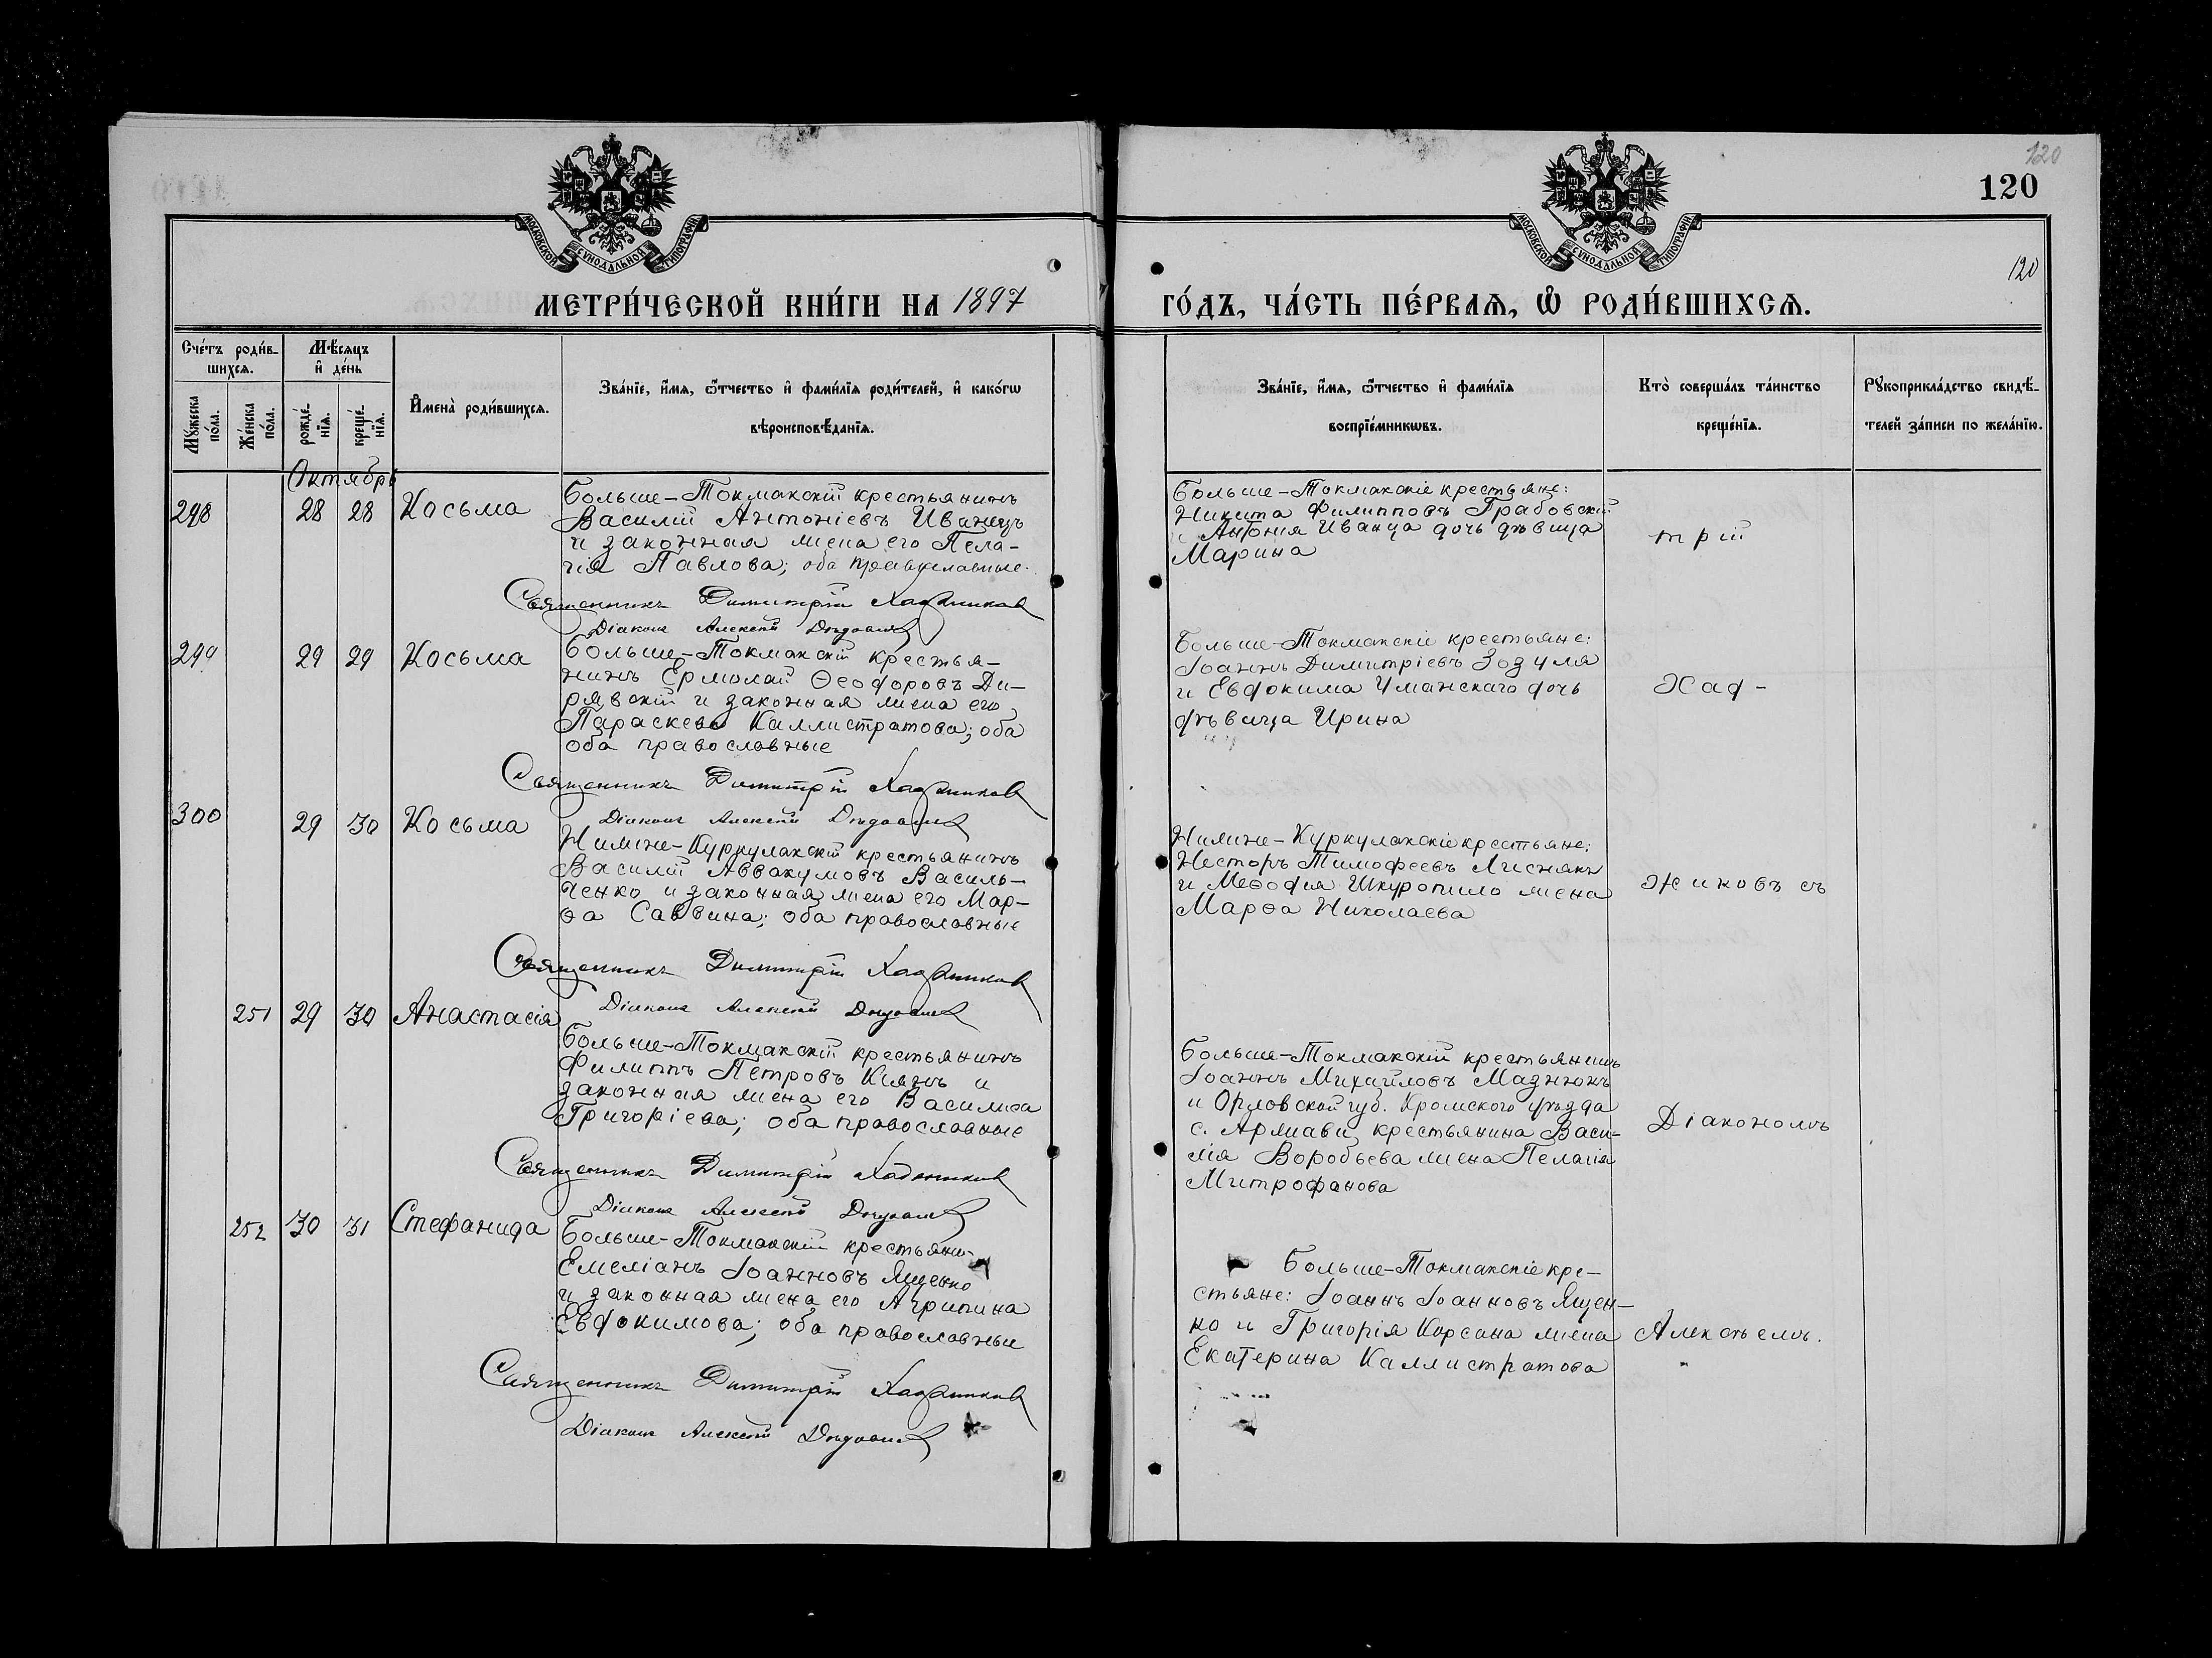 МОСКОВСКОЙ СѴНОДАЛЬНОЙ ТИПОГРАФІИ
МЕТРИ́ЧЕСКОЙ КНИ́ГИ НА 1897
Сче́тъ роди́в-
шихсѧ.
Мꙋ́жеска
по́ла.
Же́нска
по́ла.
Мѣ́сѧцъ
и҆ де́нь
рожде́-
нїѧ.
креще́-
нїѧ.
И҆мена̀ роди́вшихсѧ.
Зва́нїе, и҆́мѧ, ѻ҆́тчество и҆ фами́лїѧ роди́телей, и҆ како́гѡ
вѣроисповѣ́данїѧ.
Октябрь
298 28 28 Косьма
Больше-Токмакскій крестьянинъ
Василій Антоніевъ Иванецъ
и законная жена его Пела-
гія Павлова; оба православные.
Священникъ Димитрій
Діаконъ Алексій
299 29 29 Косьма
Больше-Токмакскій крестья-
нинъ Ермолай Ѳеодоровъ Ди-
рявскій и законная жена его
Параскева Каллистратова; оба
оба православные
Священникъ Димитрій
Діаконъ Алексій
300 29 30 Косьма
Нижне-Куркулакскій крестьянинъ
Василій Аввакумовъ Василь-
ченко и законная жена его Мар-
ѳа Саввина; оба православные
Священникъ Димитрій
Діаконъ Алексій
251 29 30 Анастасія
Больше-Токмакскій крестьянинъ
Филиппъ Петровъ Князь и
законная жена его Василиса
Григоріева; оба православные
Священникъ Димитрій
Діаконъ Алексій
252 30 31 Стефанида
Больше-Токмакскій крестьянин-
Емеліанъ Іоанновъ Ященко
и законная жена его Агрипина
Евдокимова; оба православные
Священникъ Димитрій
Діаконъ Алексій
120
120
МОСКОВСКОЙ СѴНОДАЛЬНОЙ ТИПОГРАФІИ
120
ГО́ДЪ, ЧА́СТЬ ПЕ́РВАѦ, Ѽ РОДИ́ВШИХСѦ.
Зва́нїе, и҆́мѧ, ѻ҆́тчество и҆ фами́лїѧ
воспрїе́мникѡвъ.
Кто̀ соверша́лъ та́инство
креще́нїѧ.
Рꙋкоприкла́дство свидѣ́-
телей за́писи по жела́нїю.
Больше-Токмакскіе крестьяне:
Никита Филипповъ Грабовскій
и Антонія Иванца дочь дѣвица
Марина
трій
Больше-Токмакскіе крестьяне:
Іоаннъ Димитріевъ Зозуля
и Евдокима Уманскаго дочь
дѣвица Ирина
Хад-
Нижне-Куркулакскіе крестьяне:
Несторъ Тимофеевъ Лиснякъ
и Меѳодія Шкуропило жена
Марѳа Николаева
жиновъ съ
Больше-Токмакскій крестьянинъ
Іоаннъ Михайловъ Мазнюкъ
и Орловской губ. Кромского уѣзда
с. крестьянина Васи-
лія Воробьева жена Пелагія
Митрофанова
Діакономъ
Больше-Токмакскіе кре-
стьяне: Іоаннъ Іоанновъ Ящен-
ко и Григорія Корсана жена
Екатерина Каллистратова
Алексѣемъ.